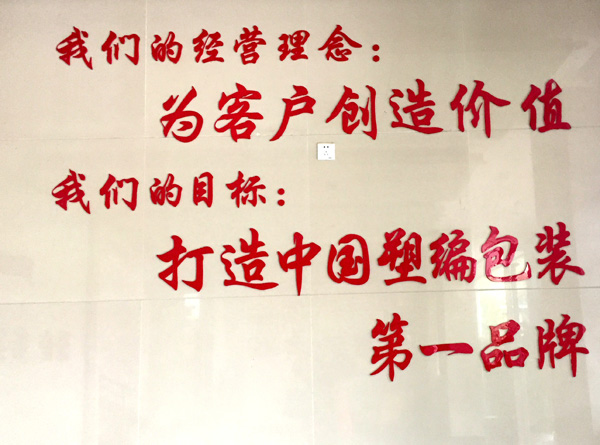 我们的经营理念:
为客户创造价值
我们的目标:
打造中国塑编包装
第一品牌